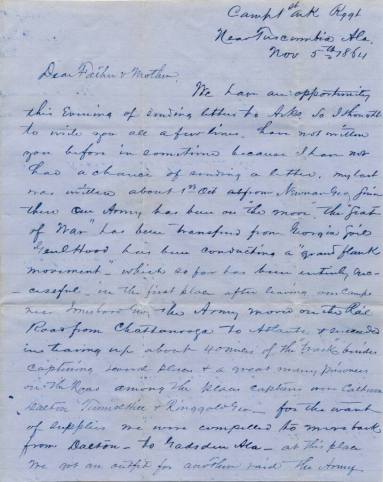 Camp 1st Ark Regt
Near Tuscumbia Ala.
Nov 5th 1864
Dear Father & Mother.
We have an opportunity
this Evening of sending letters to Arks. So I thought
to write you all a few lines. have not written
you before in sometime because I have not
had a chance of sending a letter. my last
was written about 1st Oct from Newnan Geo. Since
then our Army has been on "the move" the "Seat
of War" has been transferred from Georgia
Genl Hood has been conducting a "grand flank
movement" which so far has been entirely suc-
-cessful. in the first place after leaving our Camps
near Jonesboro Geo, the Army moved on the Rail
Road from Chattanooga to Atlanta & succeeded
in tearing up about 40 miles of the "track" besides
capturing several places & a great many prisoners
on the Road among the places captured were Calhoun
Dalton & Ringgold Geo - for the want
of supplies we were compelled to move back
from Dalton - to Gadsden Ala - at this place
we got an outfit for another raid the Army